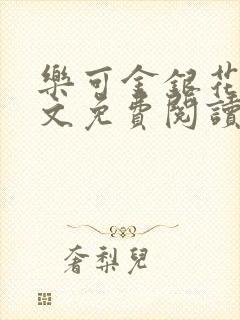 樂可金銀花
文免費閱讀
奢梨兒